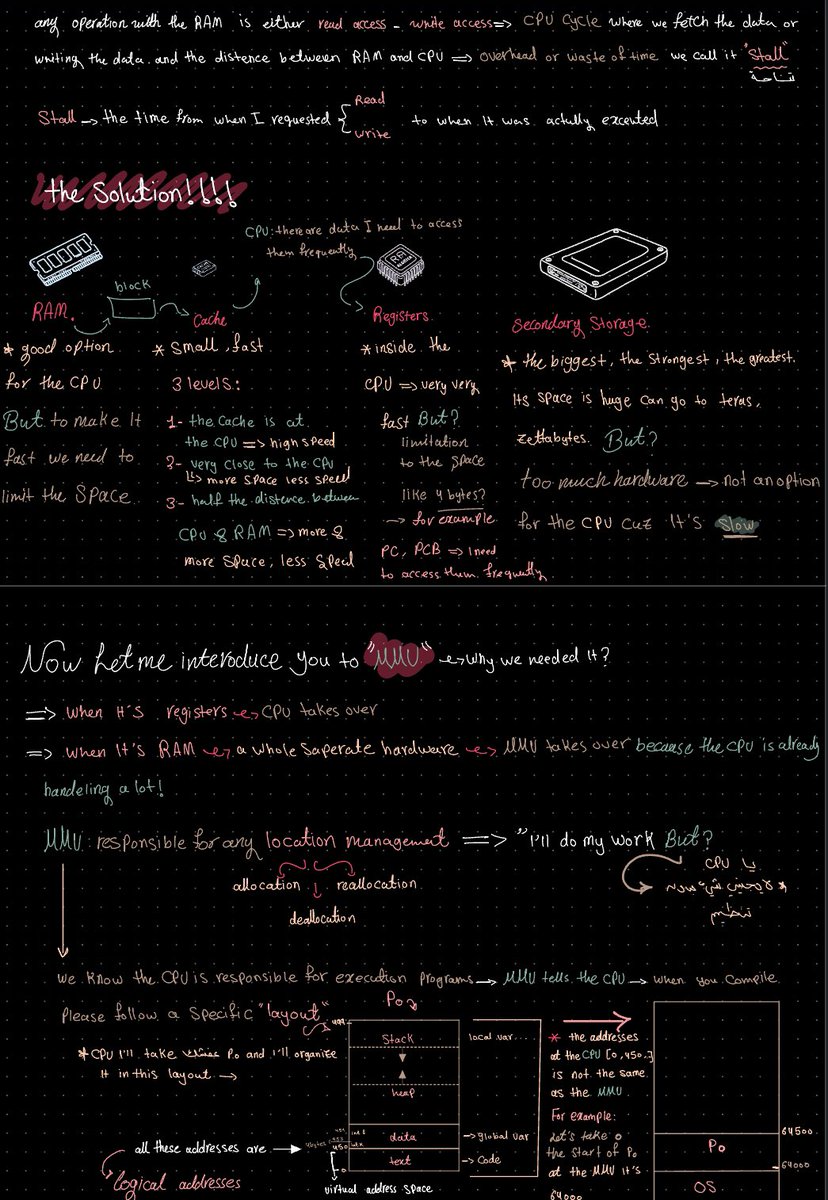 any operation with the RAM is either read access - write access => CPU Cycle where we fetch the data or
writing the data. and the distence between RAM and CPU => overhead or waste of time we call it "Stall"
Stall → the time from when I requested { Read
write
to when it was actully excented
the Solution!!!!
CPU: there are data I need to access
them frequently
block
RAM.
* good option
for the CPU
But to make it
fast we need to
limit the Space
Cache
* Small, fast
3 levels:
1- the cache is at
the CPU => high speed
2- very close to the CPU
↳ more space less speed
3- half the distence between
CPU & RAM => more &
more space, less speed
Registers
* inside the
CPU => very very
fast But?
limitation
to the space
like 4 bytes?
→ for example
PC, PCB => I need
to access them frequently
Secondary Storage.
* the biggest, the strongest, the greatest.
Its space is huge can go to teras,
zettabytes. But?
too much hardware → not an option
for the CPU cuz It's slow
Now Let me interoduce you to "MMU" → why we needed it?
=> when it's registers → CPU takes over
=> when It's RAM → a whole saperate hardware → MMU takes over because the CPU is already
handeling a lot!
MMU: responsible for any location management => "I'll do my work But?
allocation ↓ reallocation
deallocation
يا CPU
تنظيم
we know the CPU is responsible for execution programs → MMU tells the CPU → when you compile
Please follow a specific "layout"
* CPU I'll take Po and I'll organize
it in this layout →
Po
Stack
heap
data
text
local var...
→ global var
→ Code
450
0
all these addresses are →
logical addresses
virtual address space
* the addresses
at the CPU [0,450..]
is not the same
as the MMU.
For example:
Let's take 0
the start of Po
at the MMU it's
64000
64500
Po
64000
OS